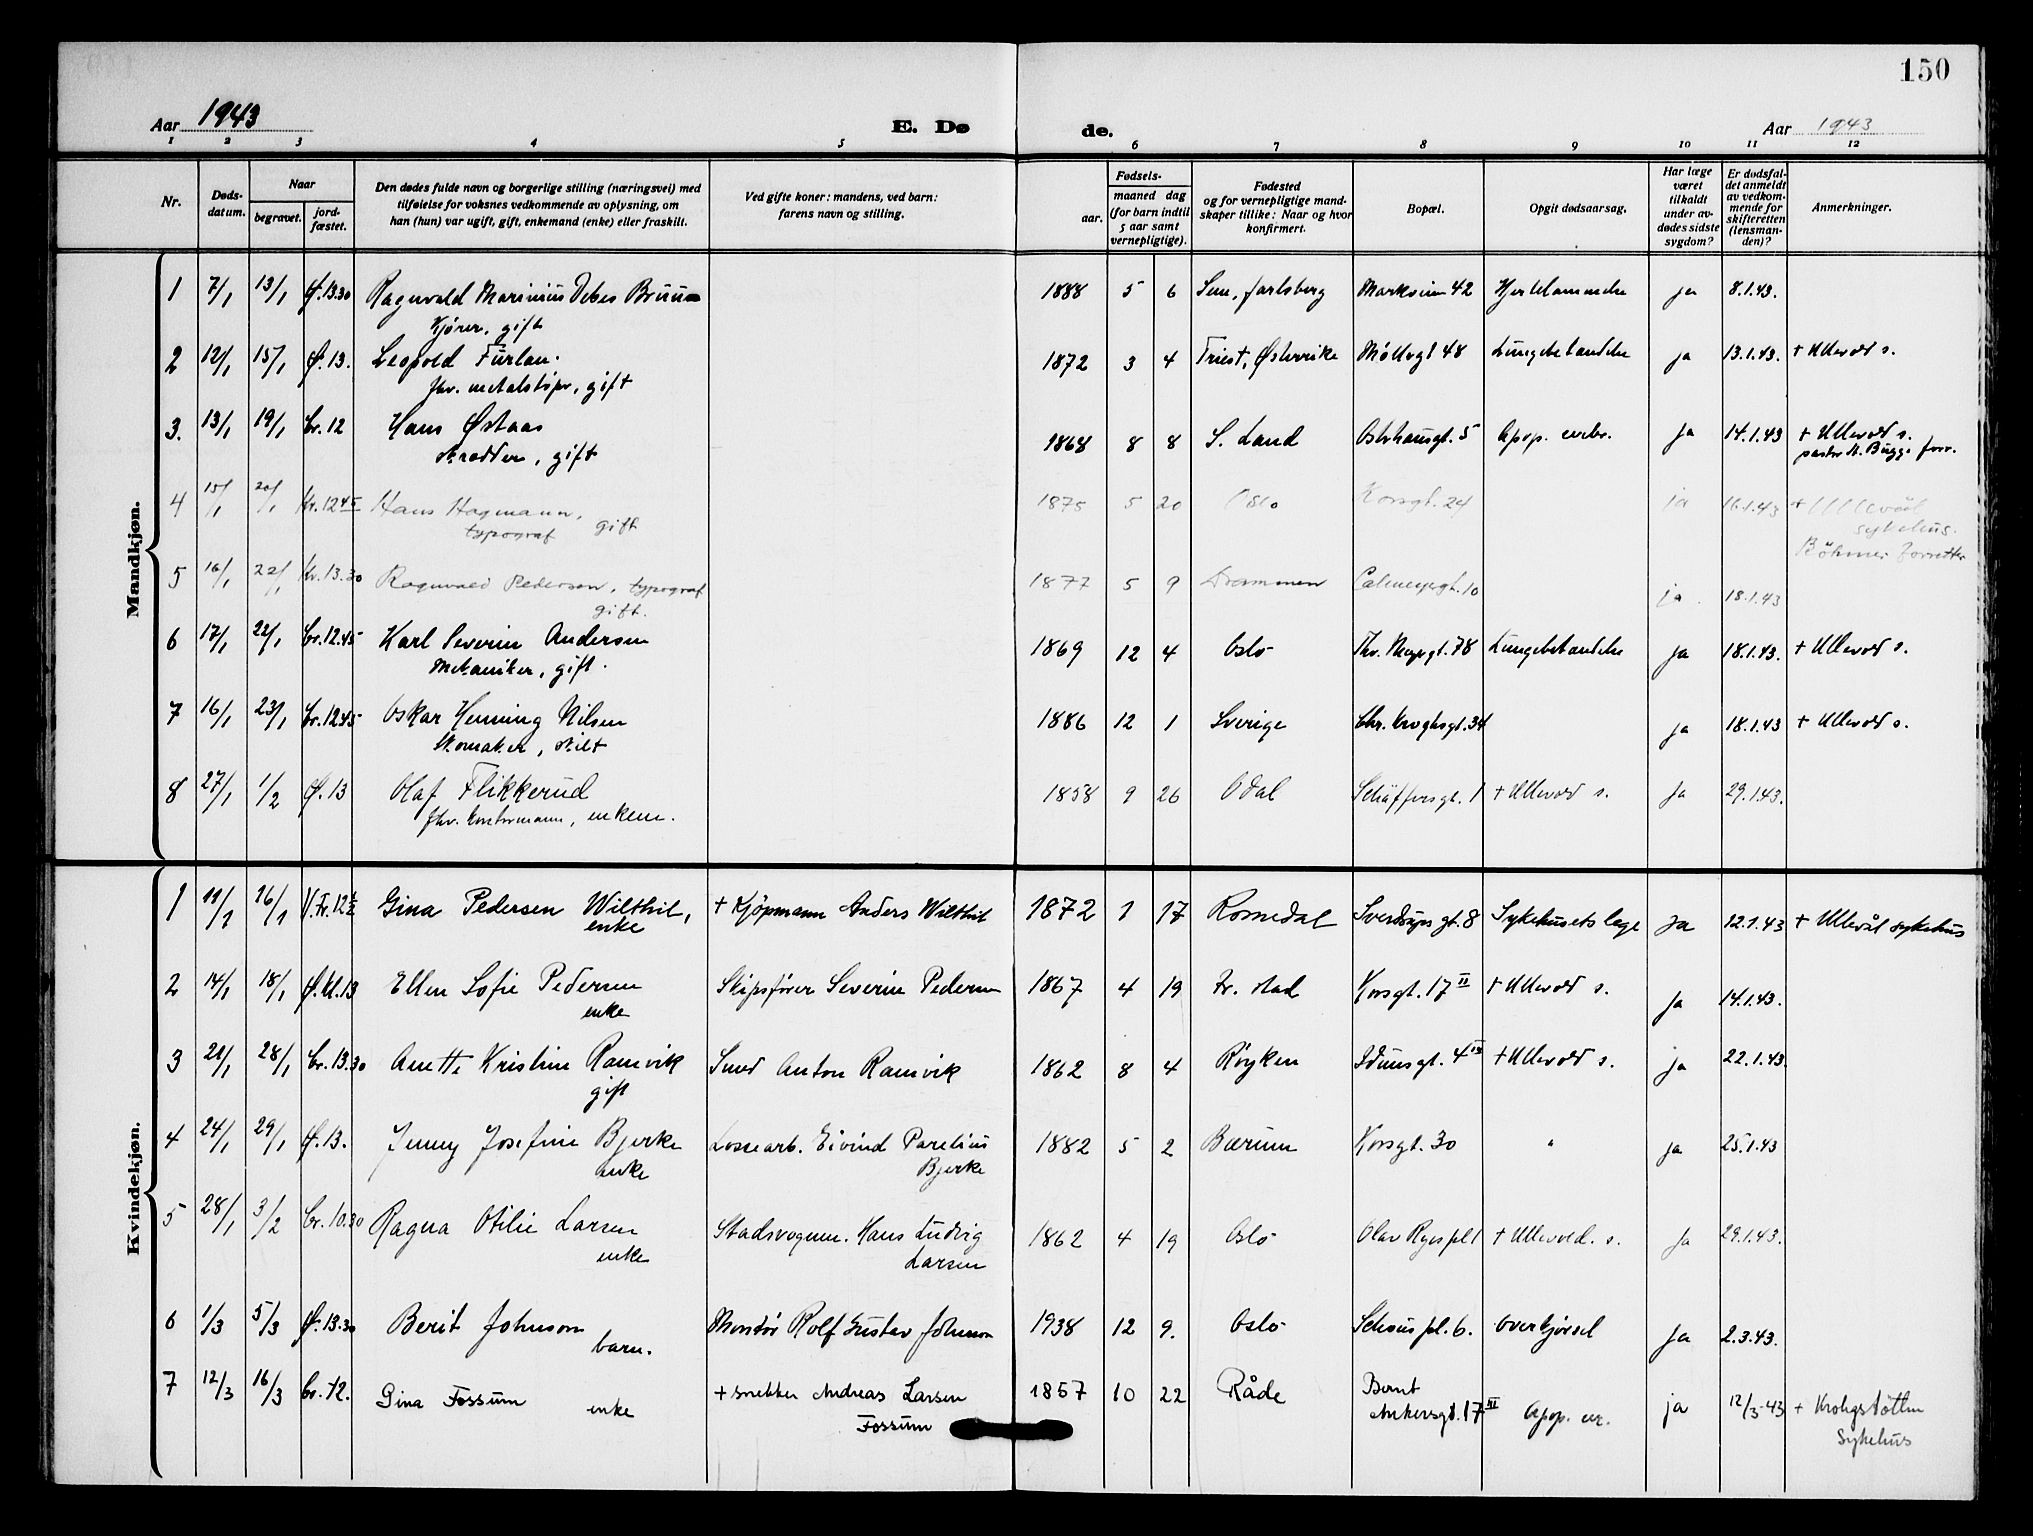 150
Aar 1943
E. Dø
de.
Aar 1943
1 2 3 4 5 6 7 8 9 10 11 12
Nr.
Døds-
datum.
Naar
begravet.
jord-
fæstet.
Den dødes fulde navn og borgerlige stilling (næringsvei) med
tilføielse for voksnes vedkommende av oplysning, om
han (hun) var ugift, gift, enkemand (enke) eller fraskilt.
Ved gifte koner: mandens, ved barn:
farens navn og stilling.
Fødsels-
aar.
maaned dag
(for barn indtil
5 aar samt
vernepligtige).
Fødested
og for vernepligtige mand-
skaper tillike: Naar og hvor
konfirmert.
Bopæl.
Opgit dødsaarsag.
Har læge
været
tilkaldt
under av-
dødes sidste
sygdom?
Er dødsfal-
det anmeldt
av vedkom-
mende for
skifteretten
(lensman-
den)?
Anmerkninger.
Mandkjøn.
1 7/1 13/1 Ø.13.30 Ragnvald Marinius Debes Bruun 1888 5 6 Sem, Jarlsberg Marksveien 42 Hjertelammelse ja 8.1.43.
Kjører, gift
2 12/1 15/1 Ø.13. Leopold Furlan. 1872 3 4 Triest, Østerrike Møllegt 48 Lungebetændelse ja 13.1.43. + Ullevold s.
fhv. metalsliper, gift
3. 13/1 19/1 Cr. 12 Hans Østaas 1868 8 8 S. Land Osterhausgt. 5 Apop. cerebr. ja 14.1.43 + Ullevold s.
skrædder, gift
pastor M. Bugge forr.
4 15/1 20/1 Kr. 12 45 Hans Hagmann, 1875 5 20 Oslo Korsgt. 24 ja 16.1.43 + Ullevål
typograf gift
sykehus.
Böhmer forretter
5 16/1 22/1 Kr. 13.30 Ragnvald Pedersen, typograf 1877 5 9 Drammen Calmeyersgt. 10 ja. 18.1.43
gift.
6 17/1 22/1 Cr. 12.45 Karl Severin Andersen 1869 12 4 Oslo Thv. Meyersgt. 78 Lungebetændelse ja 18.1.43. + Ullevold s.
Mekaniker, gift.
7 16/1 23/1 Cr. 12.45 Oskar Henning Nilsen 1886 12 1 Sverige Chr. Kroghsgt. 34 ja 18.1.43 + Ullevold s.
Skomaker, skilt
8 27/1 1/2 Ø. 13 Olaf Flikkerud 1858 9 26 Odal Schäffersgt. 1 + Ullevold s. ja 29.1.43.
fhv. kontormann, enkem.
Kvindekjøn.
1 11/1 16/1 V.Fr. 12½ Gina Pedersen Wilthil, + Kjöpmann Anders Wilthil 1872 1 17 Romedal Sverdrups gt. 8 Sykehusets lege ja 12.1.43 + Ullevål sykehus
enke
2 14/1 18/1 Ø. kl. 13 Ellen Sofie Pedersen Skipsfører Severin Pedersen 1867 4 19 Fr. stad Korsgt. 17 II + Ullevold s. ja 14.1.43.
enke
3 21/1 28/1 Cr. 13.30 Anette Kristine Ramvik Smed Anton Ramvik 1862 8 4 Røyken Idunsgt. 4 + Ullevold s. ja 22.1.43.
gift
4 24/1 29/1 Ø. 13. Jenny Josefine Bjerke Lossearb. Eivind Parelius 1882 5 2 Bærum Korsgt. 30 " ja 25.1.43
enke Bjerke
5 28/1 3/2 Cr. 10.30 Ragna Otilie Larsen Stadsvognm. Hans Ludvig 1862 4 19 Oslo Olav Ryes pl 1 + Ullevold. s. ja 29.1.43.
enke Larsen
6 1/3 5/3 Ø. 13.30 Berit Johnson Montør Rolf Gustav Johnson 1938 12 9. Oslo Schous pl. 6. overkjørsel ja 2.3.43.
barn.
7 12/3 16/3 Cr. 12. Gina Fossum + snekker Andreas Larsen 1857 10 22 Råde Bernt
enke Fossum Ankersgt. 17 III Apop. cer. ja 12/3-43 + Krohgstøtten
Sykehus